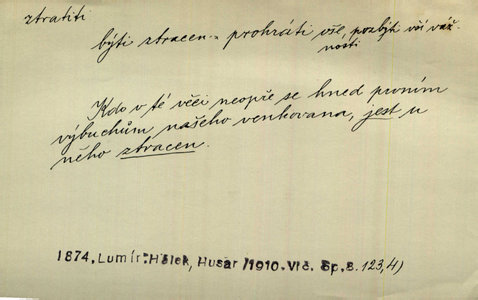 ztratiti
býti ztracen = prohráti vše, pozbýti vší váž-
nósti
Kdo v té věci neopře se hned prvním
výbuchům našeho venkovana, jest u
něho ztracen.
1874, Lumír: Hálek, Husar /1910. Vlč. Sp. 8. 123,4)